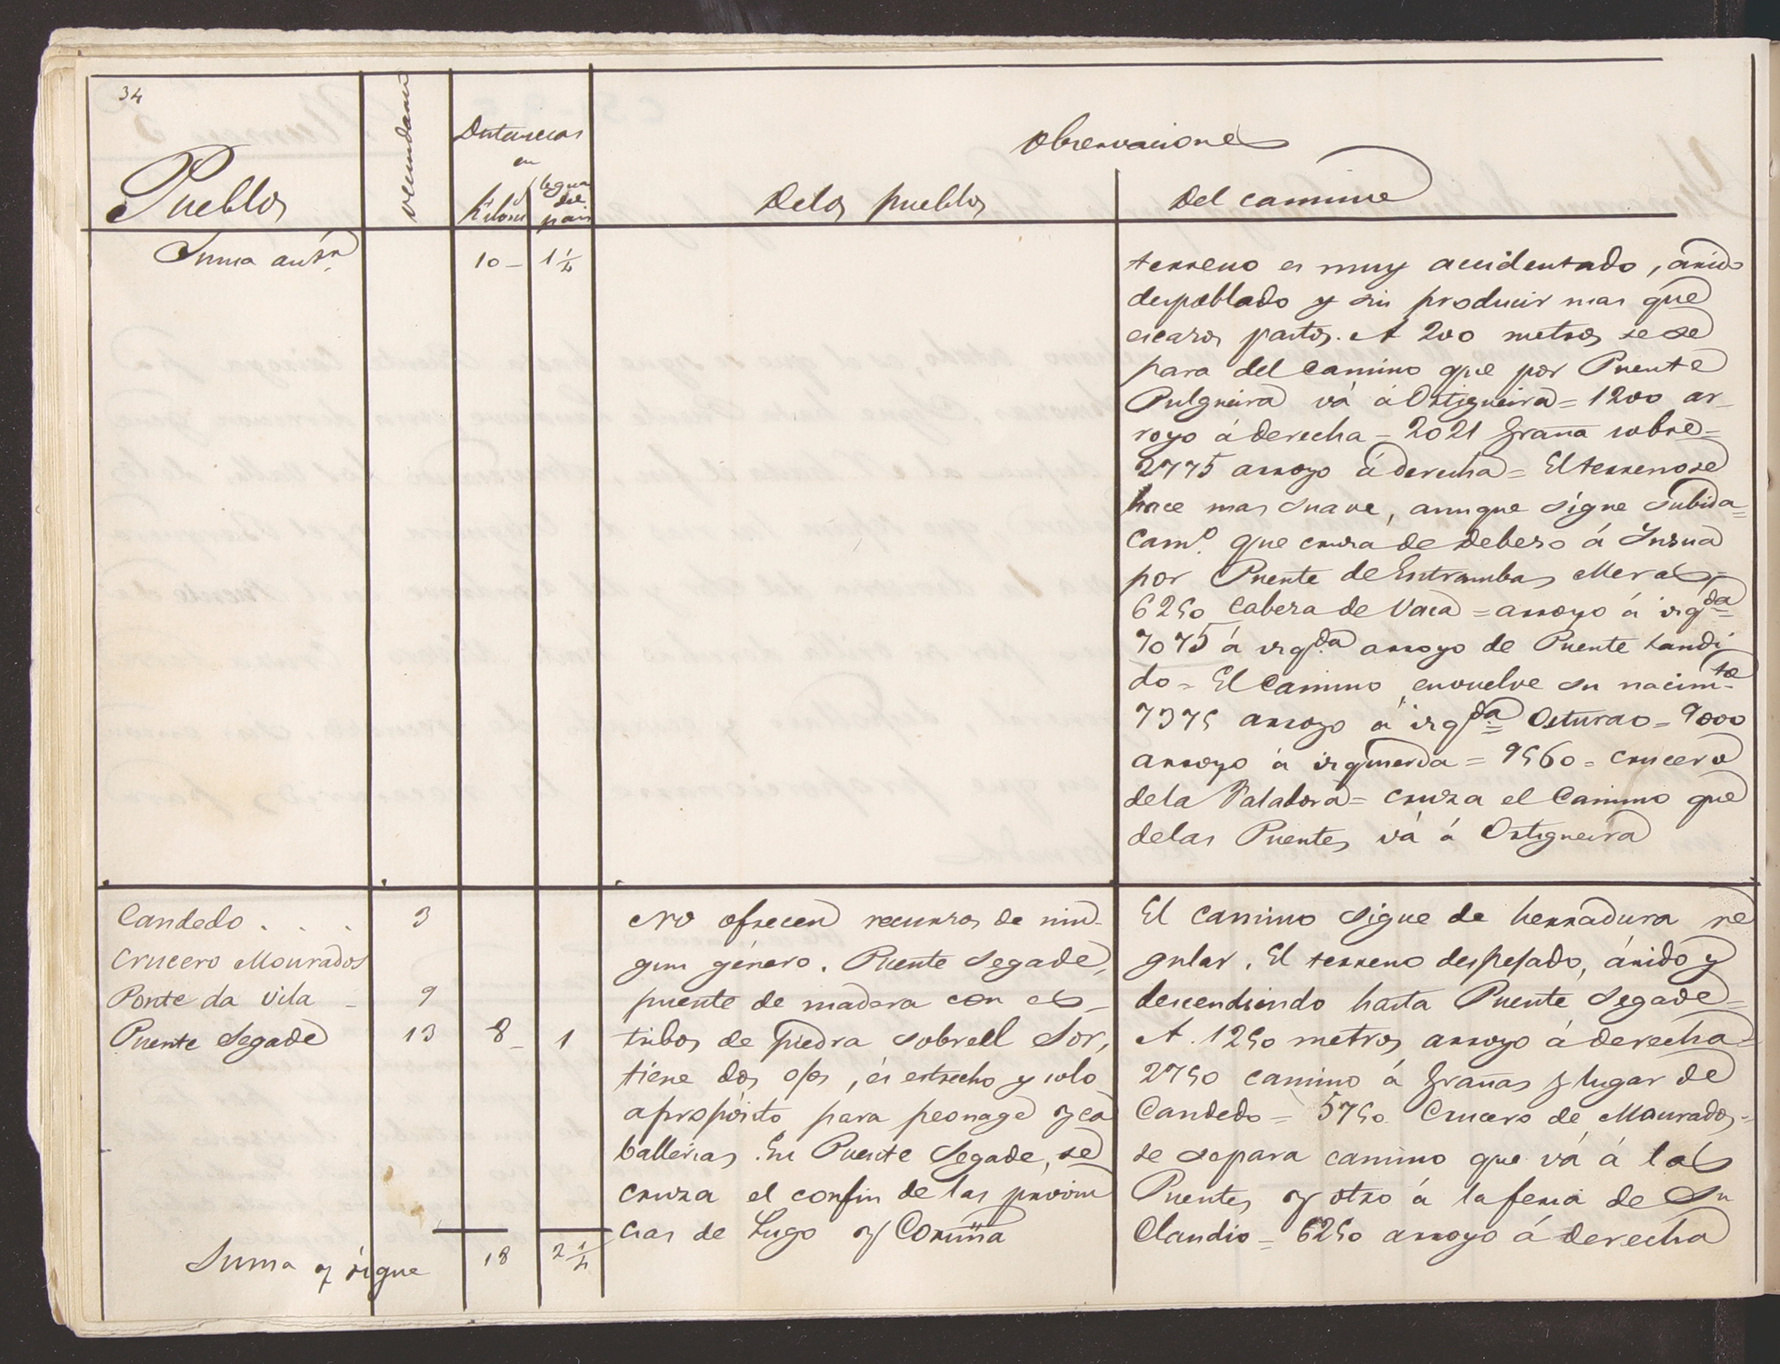 34
Pueblos
vecindario
Distancias
en
Kilóms
leguas
del
pais
Observaciones
De los pueblos
Del camino
Suma antr.
10
1 1/4
terreno es muy accidentado, árido
despoblado y sin producir mas que
escasos pastos. A 200 metros se se
para del camino que por Puente
Pulgueira vá á Ortigueira = 1200 ar_
royo á derecha = 2021 Graña sobre =
2775 arroyo á derecha = El terreno se
hace mas suave, aunque sigue subida =
Cam.º que cruza de Rebero á Insua
por Puente de Entrambas Meras =
6250 Cabeza de Vaca = arroyo á izqda =
7075 á izqda arroyo de Puente Landi
do = El Camino envuelve su nacimto =
7375 arroyo á izqda Osturao = 9000
arroyo á izquierda = 9560 = crucero
de la Faladora = cruza el Camino que
de las Puentes vá á Ortigueira
Candedo . . .
3
Crucero Mourados
Ponte da Vila _
9
Puente Segade
13
8 _
1
No ofrecen recursos de nin-
gun género. Puente Segade,
puente de madera con es_
tribos de piedra sobre el Sor,
tiene dos ojos, es estrecho y solo
apropósito para peonage y ca
ballerias. En Puente Segade, se
cruza el confin de las provin
cias de Lugo y Coruña
El camino sigue de herradura re
gular. El terreno despejado, árido y
descendiendo hasta Puente Segade =
A 1250 metros arroyo á derecha =
2750 camino á Grañas y lugar de
Candedo = 5750 Crucero de Mourados =
se separa camino que vá á las
Puentes y otro á la feria de Sn
Claudio = 6250 arroyo á derecha
Suma y sigue
18
2 1/4